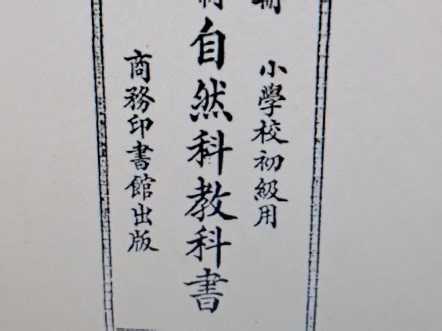 小學校初級用
自然科教科書
商務印書館出版